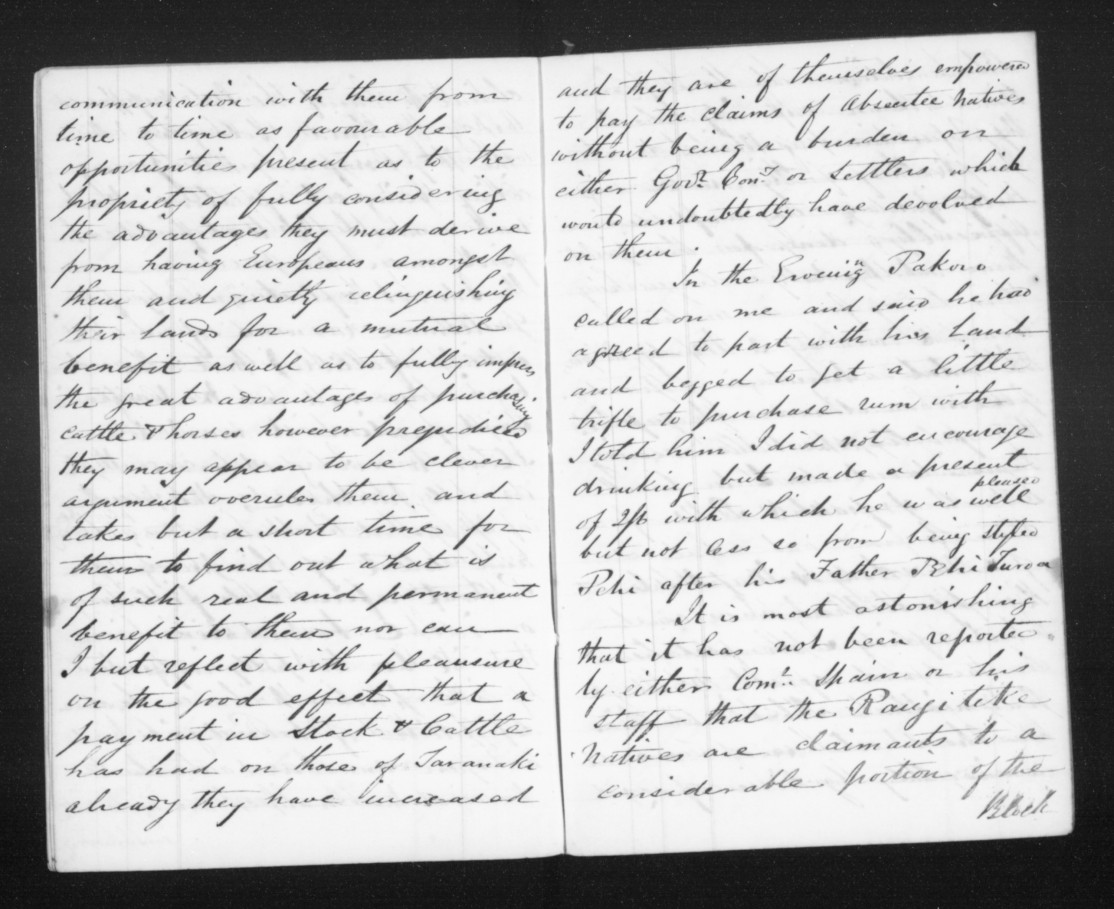 communication with them from
time to time as favourable
opportunities present as to the
propriety of fully considering
the advantages they must derive
from having Europeans amongst
them and quietly relinquishing
their Lands for a mutual
benefit as well as to fully impress
the great advantages of purchasing
cattle & horses however prejudiced
they may appear to be clever
argument overrules them and
takes but a short time for
them to find out what is
of such real and permanent
benefit to them nor can
I but reflect with pleausure
on the good effect that a
payment in Stock & Cattle
has had on those of Taranaki
already they have increased
and they are of themselves empowered
to pay the claims of Absentee Natives
without being a burden on
either Govt. or Settlers which
would undoubtedly have devolved
on them.
In the Evening Pakoro
called on me and said he had
agreed to part with his Land
and begged to get a little
trifle to purchase rum with
I told him I did not encourage
drinking but made a present
of 2/6 with which he was well pleased
but not less so from being styled
Pehi after his Father Pehi Turoa
It is most astonishing
that it has not been reported
by either Comr. Spain or his
staff that the Rangitike
Natives are claimants to a
considerable portion of the
Block